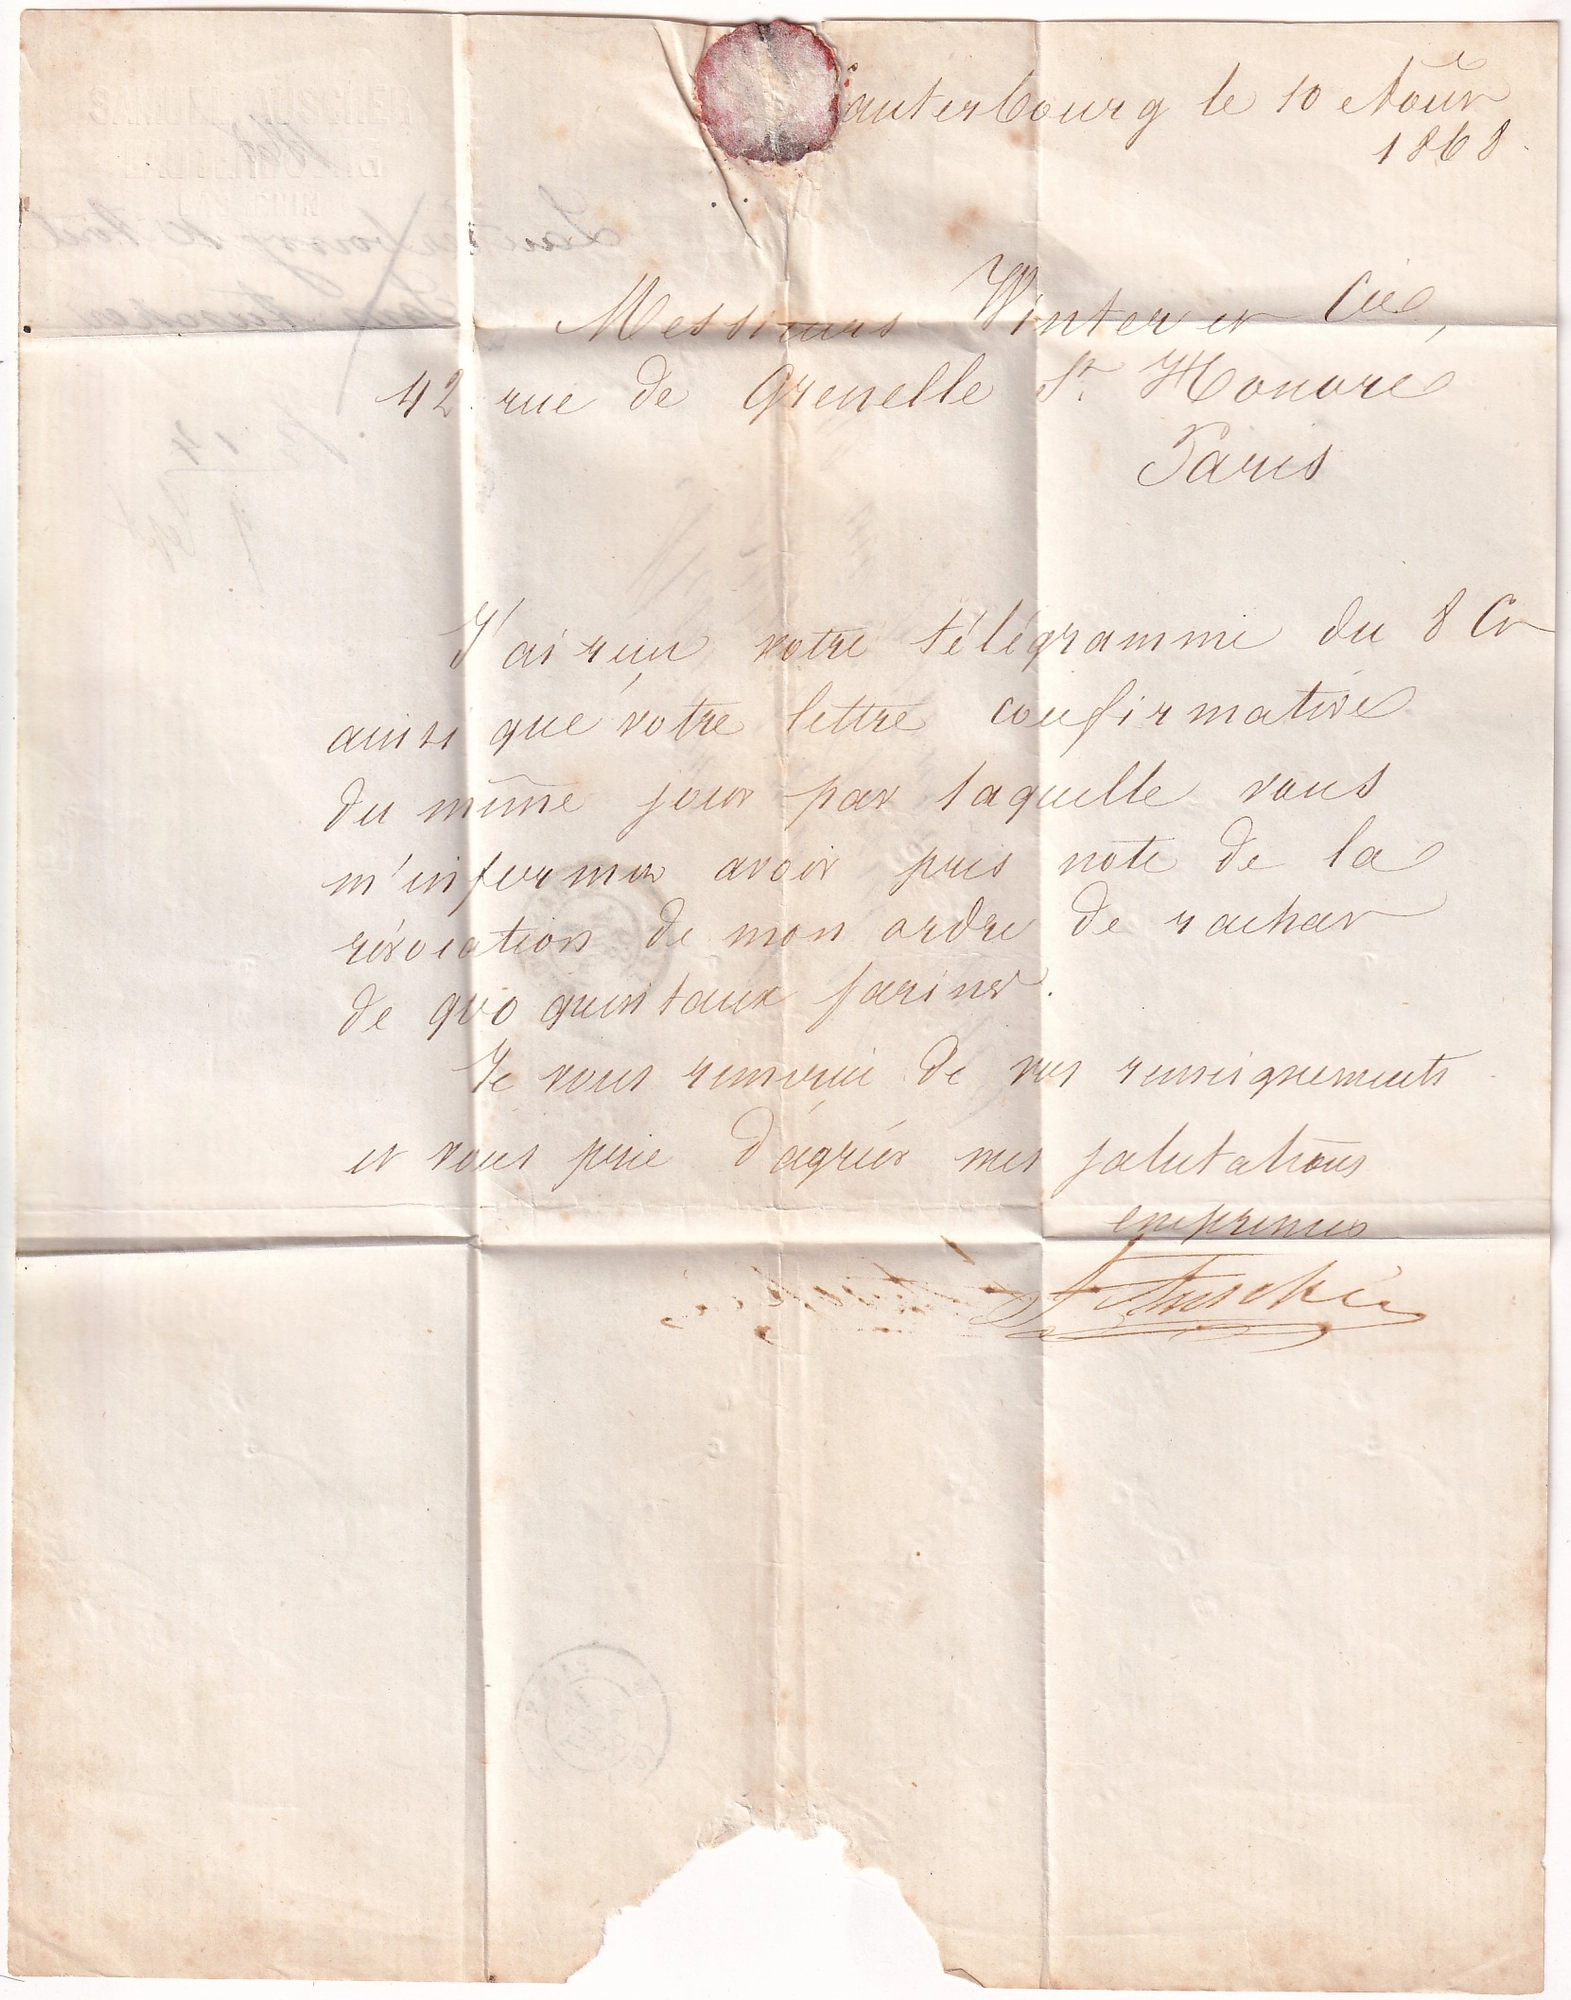 auterbourg le 10 Aout
1868.
Messieurs Winter et Cie,
42 rue de Grenelle St. Honoré
Paris
J'ai reçu votre télégramme du 8 Ct
ainsi que votre lettre confirmative
du même jour par laquelle vous
m'informez avoir pris note de la
révocation de mon ordre de rachat
de quintaux farines.
Je vous remercie de vos renseignements
et vous prie d'agréer mes salutations
empressées